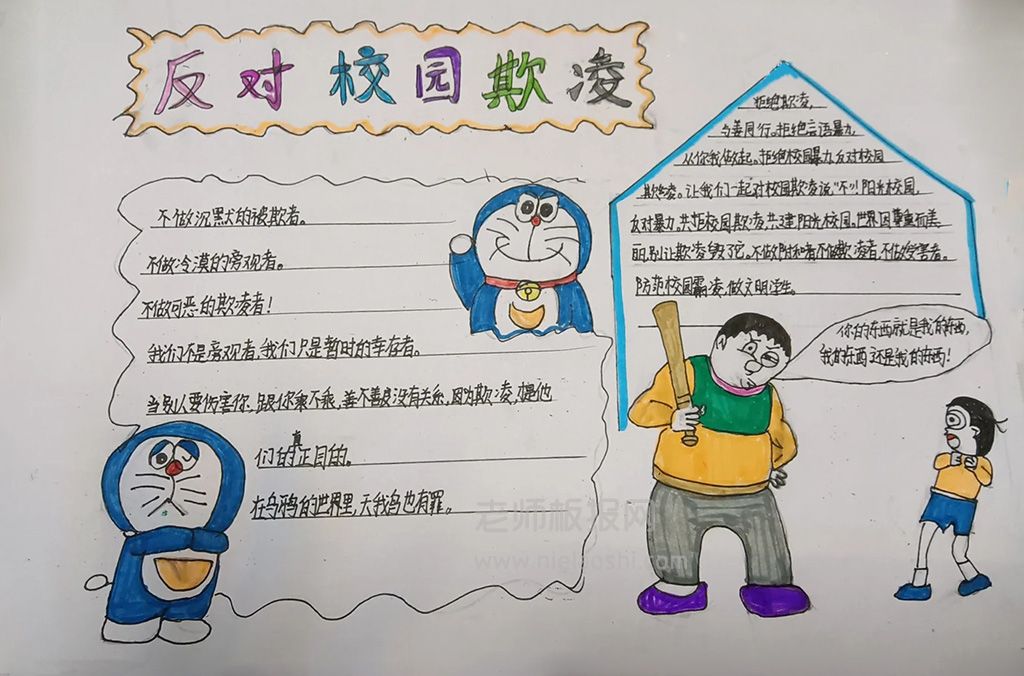 反对校园欺凌
不做沉默的被欺者。
不做冷漠的旁观者。
不做可恶的欺凌者!
我们不是旁观者,我们只是暂时的幸存者。
当别人要伤害你,跟你乖不乖,善不善良没有关系,因为欺凌,才是他
们的真正目的。
在乌鸦的世界里,天鹅也有罪。
拒绝欺凌,
与善同行。拒绝言语暴力,
从你我做起。拒绝校园暴力,反对校园
欺凌。让我们一起对校园欺凌说"不"!阳光校园,
反对暴力。共拒校园欺凌,共建阳光校园。世界因尊重而美
丽,别让欺凌毁了它。不做附和者不做欺凌者,不做受害者。
防范校园霸凌,做文明学生。
你的东西就是我的东西,
我的东西还是我的东西!
老师板报网